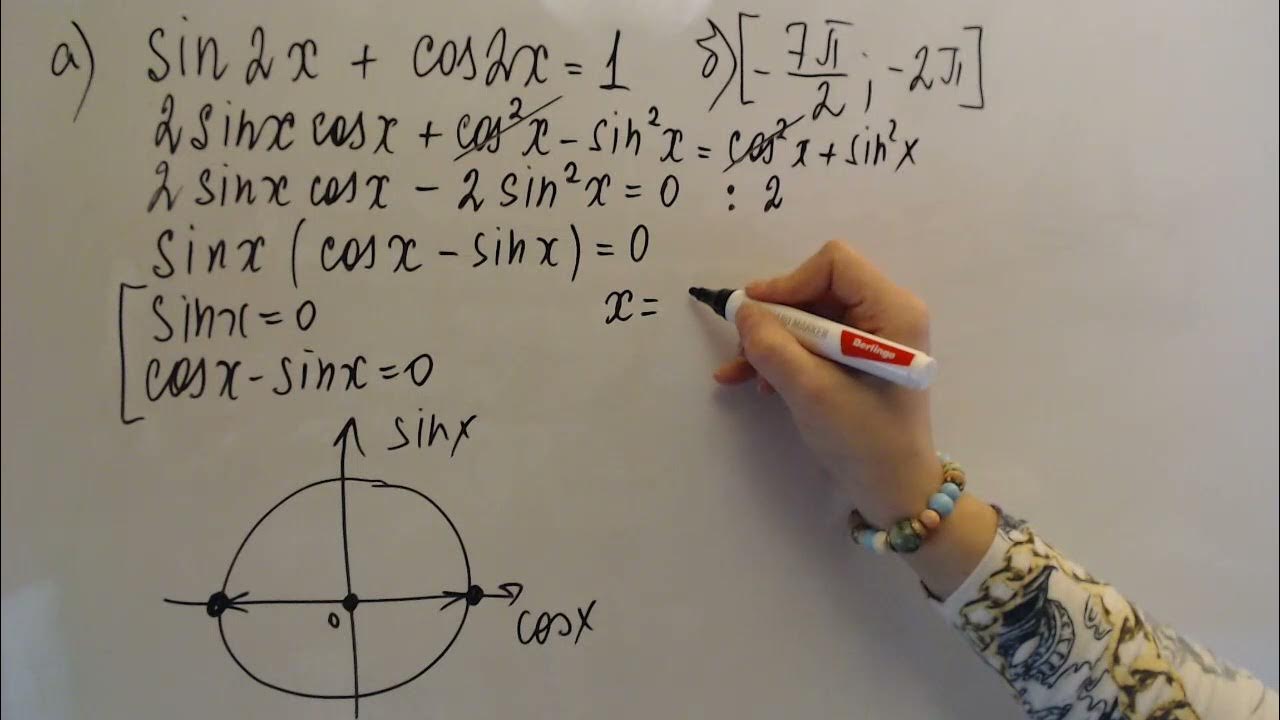 а) sin 2x + cos2x = 1 б) [-7π/2; -2π]
2 sinx cosx + cos²x - sin²x = cos²x + sin²x
2 sinx cosx - 2 sin²x = 0 : 2
sinx (cosx - sinx) = 0
sinx = 0 x =
cosx - sinx = 0
sinx
0
cosx
MARKER
Berlingo